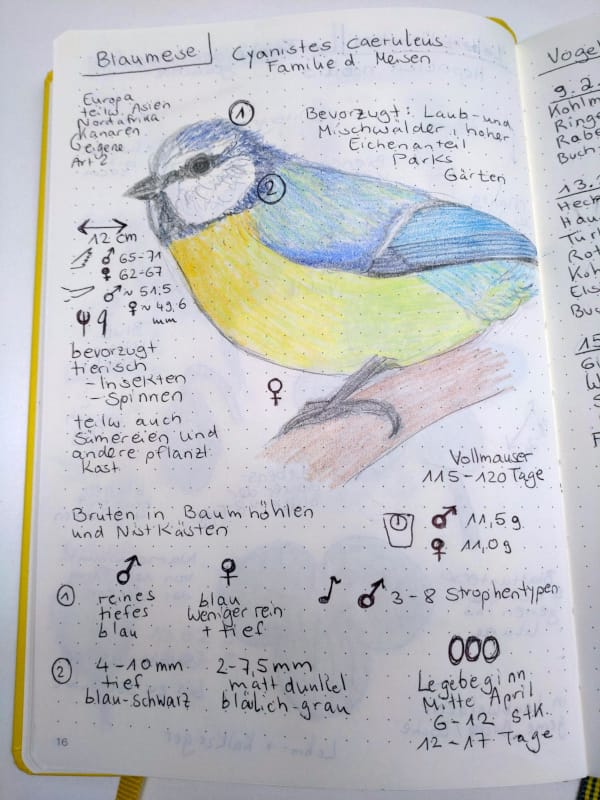 Blaumeise
Cyanistes caeruleus
Familie d. Meisen
Europa
teilw. Asien
Nordafrika
Kanaren
(eigene
Art?
1
Bevorzugt: Laub- und
Mischwälder, hoher
Eichenanteil
Parks
Gärten
2
12 cm
♂ 65-71
♀ 62-67
♂ ≈ 51,5
♀ ≈ 49,6
mm
bevorzugt
tierisch
- Insekten
- Spinnen
teilw. auch
Sämereien und
andere pflanzl.
Kost
♀
Vollmauser
115-120 Tage
Brüten in Baumhöhlen
und Nistkästen
♂ 11,5 g
♀ 11,0 g
♂ ♀
1 reines
tiefes
blau
blau
weniger rein
+ tief
♂ 3-8 Strophentypen
2 4-10 mm
tief
blau-schwarz
2-7,5 mm
matt dunkel
bläulich-grau
Legebeginn
Mitte April
6-12 Stk.
12-17 Tage
16
Vögel
9.2.
Kohlm
Ringe
Rabe
Buch
13.
Heck
Haus
Türk
Rot
Koh
Els
Buc
15